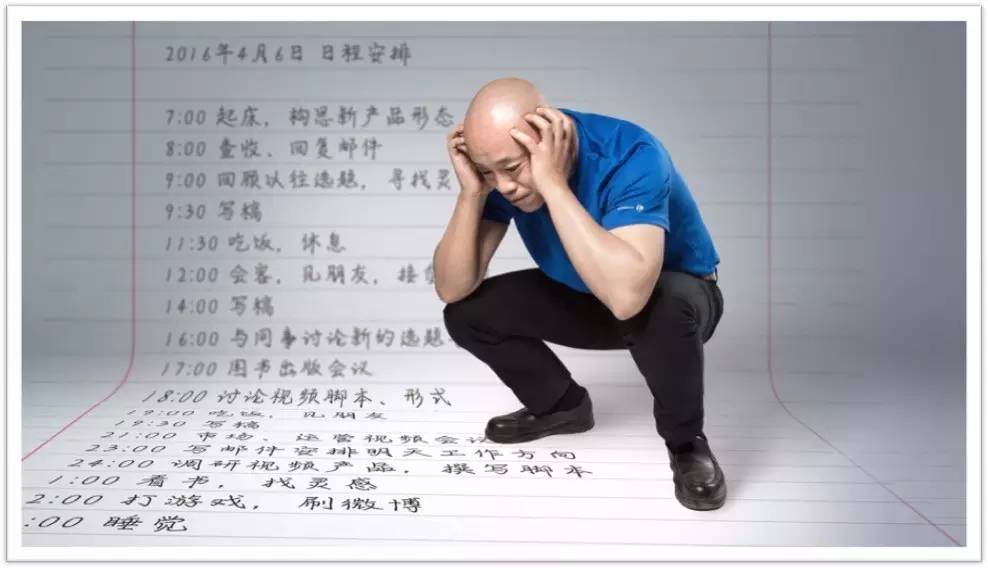 2016年4月6日 日程安排
7:00 起床，构思新产品形态
8:00 查收、回复邮件
9:00 回顾以往选题，寻找灵
9:30 写稿
11:30 吃饭，休息
12:00 会客，见朋友，接
14:00 写稿
16:00 与同事讨论新的选题
17:00 图书出版会议
18:00 讨论视频脚本、形式
19:00 吃饭，见朋友
19:30 写稿
21:00 市场、运营视频会议
23:00 写邮件安排明天工作方向
24:00 调研视频产品，撰写脚本
1:00 看书，找灵感
2:00 打游戏，刷微博
:00 睡觉